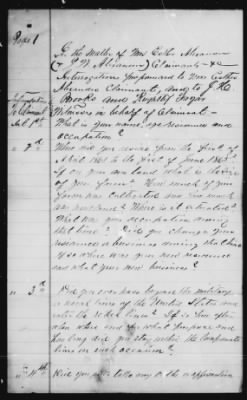 Page 1
In the matter of Mrs Esther
Claimants
Interrogatories Propounded to Mrs Esther
Claimant, and to J. H.
Brooks and
Witnesses in behalf of Claimant
Int 1st What is your name, age residence and
occupation?
" 2nd Where did you reside from the first of
April 1861 to the first of June 1865?
If on your own land what is the size
of your farm? How much of your
farm was cultivated and how much
was woodland? Where is it situated?
What was your occupation during
that time? Did you change your
residence or business during that time
If so where was your new residence
and what your new business?
" 3rd Did you ever pass beyond the military
or naval lines of the United States and
enter the rebel lines? If so how often
also when and for what purpose and
how long did you stay within the Confederate
lines on each occasion?
" 4th Did you ever take any oath or affirmation